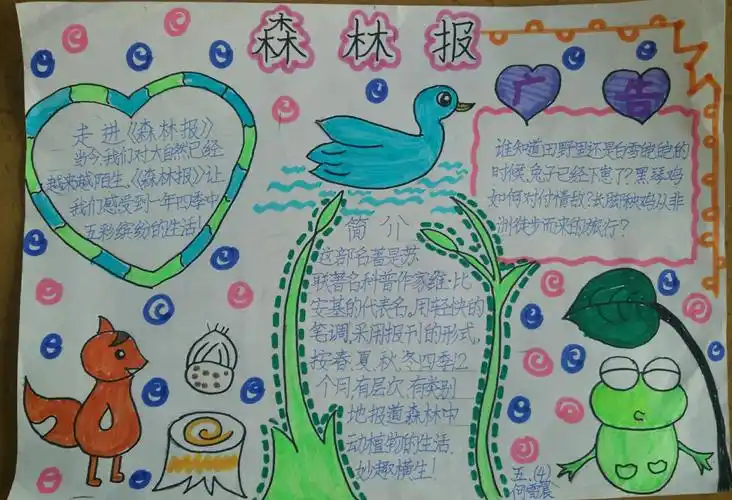 森林报
走进《森林报》
当今,我们对大自然已经
越来越陌生,《森林报》让
我们感受到一年四季中
五彩缤纷的生活!
简介
这部名著是苏
联著名科普作家维·比
安基的代表名。用轻快的
笔调,采用报刊的形式,
按春、夏、秋、冬四季12
个月,有层次,有类别
地报道森林中
动植物的生活,
妙趣横生!
广告
谁知道田野里还是白雪皑皑的
时候,兔子已经下崽了?黑琴鸡
如何对付情敌?长脚秧鸡从非
洲徒步而来的旅行?
五.(4)